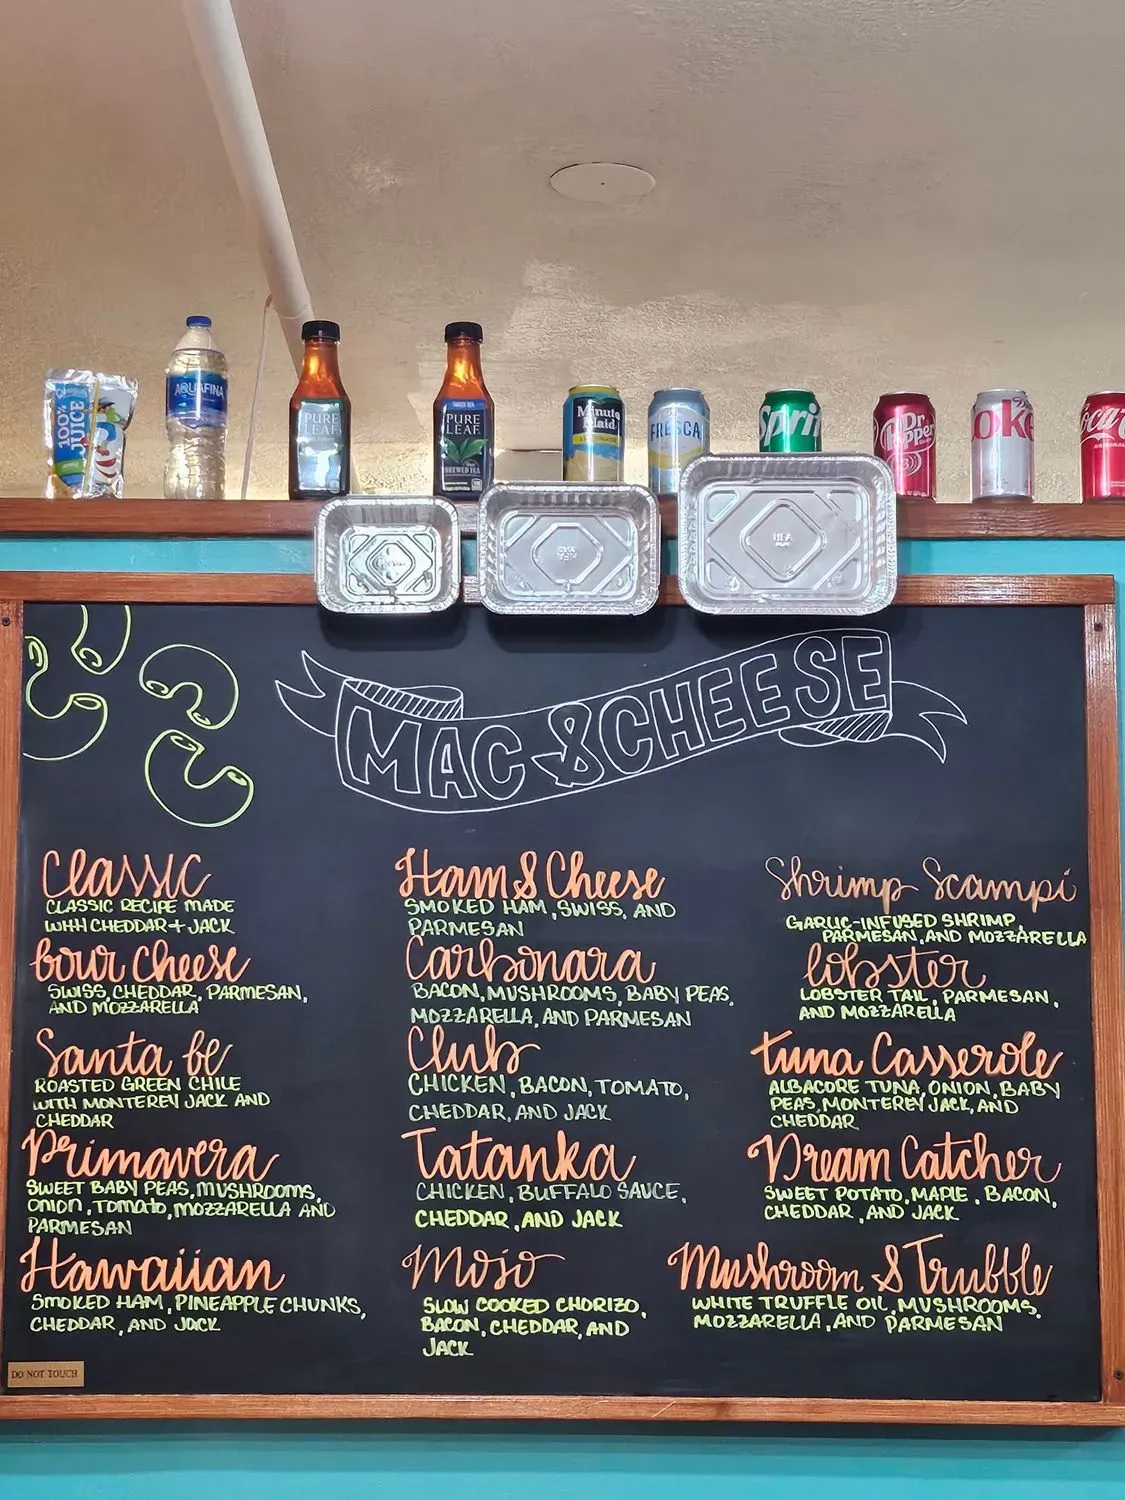 100%
JUICE
AQUAFINA
PURE
LEAF
PURE
LEAF
BREWED TEA
Minute
Maid
FRESCA
Sprit
Dr
Pepper
23
oke
oca-
MAC & CHEESE
Classic
CLASSIC RECIPE MADE
WITH CHEDDAR + JACK
Four Cheese
SWISS, CHEDDAR, PARMESAN,
AND MOZZARELLA
Santa Fe
ROASTED GREEN CHILE
WITH MONTEREY JACK AND
CHEDDAR
Primavera
SWEET BABY PEAS, MUSHROOMS,
ONION, TOMATO, MOZZARELLA AND
PARMESAN
Hawaiian
SMOKED HAM, PINEAPPLE CHUNKS,
CHEDDAR, AND JACK
DO NOT TOUCH
Ham & Cheese
SMOKED HAM, SWISS, AND
PARMESAN
Carbonara
BACON, MUSHROOMS, BABY PEAS,
MOZZARELLA, AND PARMESAN
Club
CHICKEN, BACON, TOMATO,
CHEDDAR, AND JACK
Tatanka
CHICKEN, BUFFALO SAUCE,
CHEDDAR, AND JACK
Mojo
SLOW COOKED CHORIZO,
BACON, CHEDDAR, AND
JACK
Shrimp Scampi
GARLIC-INFUSED SHRIMP,
PARMESAN, AND MOZZARELLA
Lobster
LOBSTER TAIL, PARMESAN,
AND MOZZARELLA
Tuna Casserole
ALBACORE TUNA, ONION, BABY
PEAS, MONTEREY JACK, AND
CHEDDAR
Dream Catcher
SWEET POTATO, MAPLE, BACON,
CHEDDAR, AND JACK
Mushroom & Truffle
WHITE TRUFFLE OIL, MUSHROOMS,
MOZZARELLA, AND PARMESAN